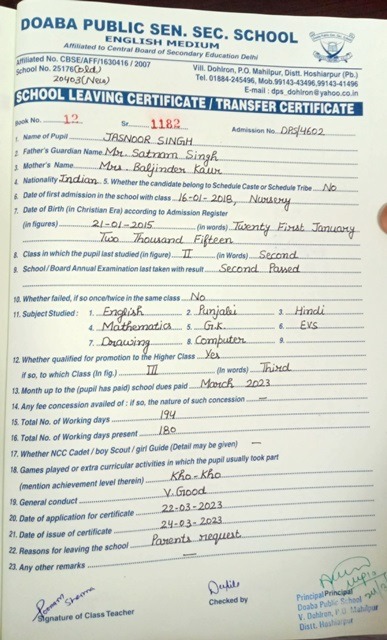 DOABA PUBLIC SEN. SEC. SCHOOL
ENGLISH MEDIUM
Affiliated to Central Board of Secondary Education Delhi
Affiliated No. CBSE/AFF/1630416 / 2007
School No. 25176 (old)
20403 (New)
Vill. Dohlron, P.O. Mahilpur, Distt. Hoshiarpur (Pb.)
Tel. 01884-245496, Mob.99143-43496,99143-41496
E-mail : dps_dohlron@yahoo.co.in
SCHOOL LEAVING CERTIFICATE / TRANSFER CERTIFICATE
Book No. 12 Sr. 1182 Admission No. DPS/4602
1. Name of Pupil JASNOOR SINGH
2. Father's Guardian Name Mr. Satnam Singh
3. Mother's Name Mrs. Baljinder Kaur
4. Nationality Indian 5. Whether the candidate belong to Schedule Caste or Schedule Tribe No
6. Date of first admission in the school with class 16-01-2018, Nursery
7. Date of Birth (in Christian Era) according to Admission Register
(in figures) 21-01-2015 (in words) Twenty First January
Two Thousand Fifteen
8. Class in which the pupil last studied (in figure) II (in Words) Second
9. School / Board Annual Examination last taken with result Second Passed
10. Whether failed, if so once/twice in the same class No
11. Subject Studied : 1. English 2. Punjabi 3. Hindi
4. Mathematics 5. G.K. 6. EVS
7. Drawing 8. Computer 9.
12. Whether qualified for promotion to the Higher Class Yes
if so, to which Class (In fig.) III (in words) Third
13. Month up to the (pupil has paid) school dues paid March 2023
14. Any fee concession availed of : if so, the nature of such concession —
15. Total No. of Working days 194
16. Total No. of Working days present 180
17. Whether NCC Cadet / boy Scout / girl Guide (Detail may be given) —
18. Games played or extra curricular activities in which the pupil usually took part
(mention achievement level therein) Kho-Kho
19. General conduct V. Good
20. Date of application for certificate 22-03-2023
21. Date of issue of certificate 24-03-2023
22. Reasons for leaving the school Parents request
23. Any other remarks —
Poonam Sharma
Signature of Class Teacher
Checked by
Principal
Principal
Doaba Public School
V. Dohlron, P.O. Mahilpur
Distt. Hoshiarpur